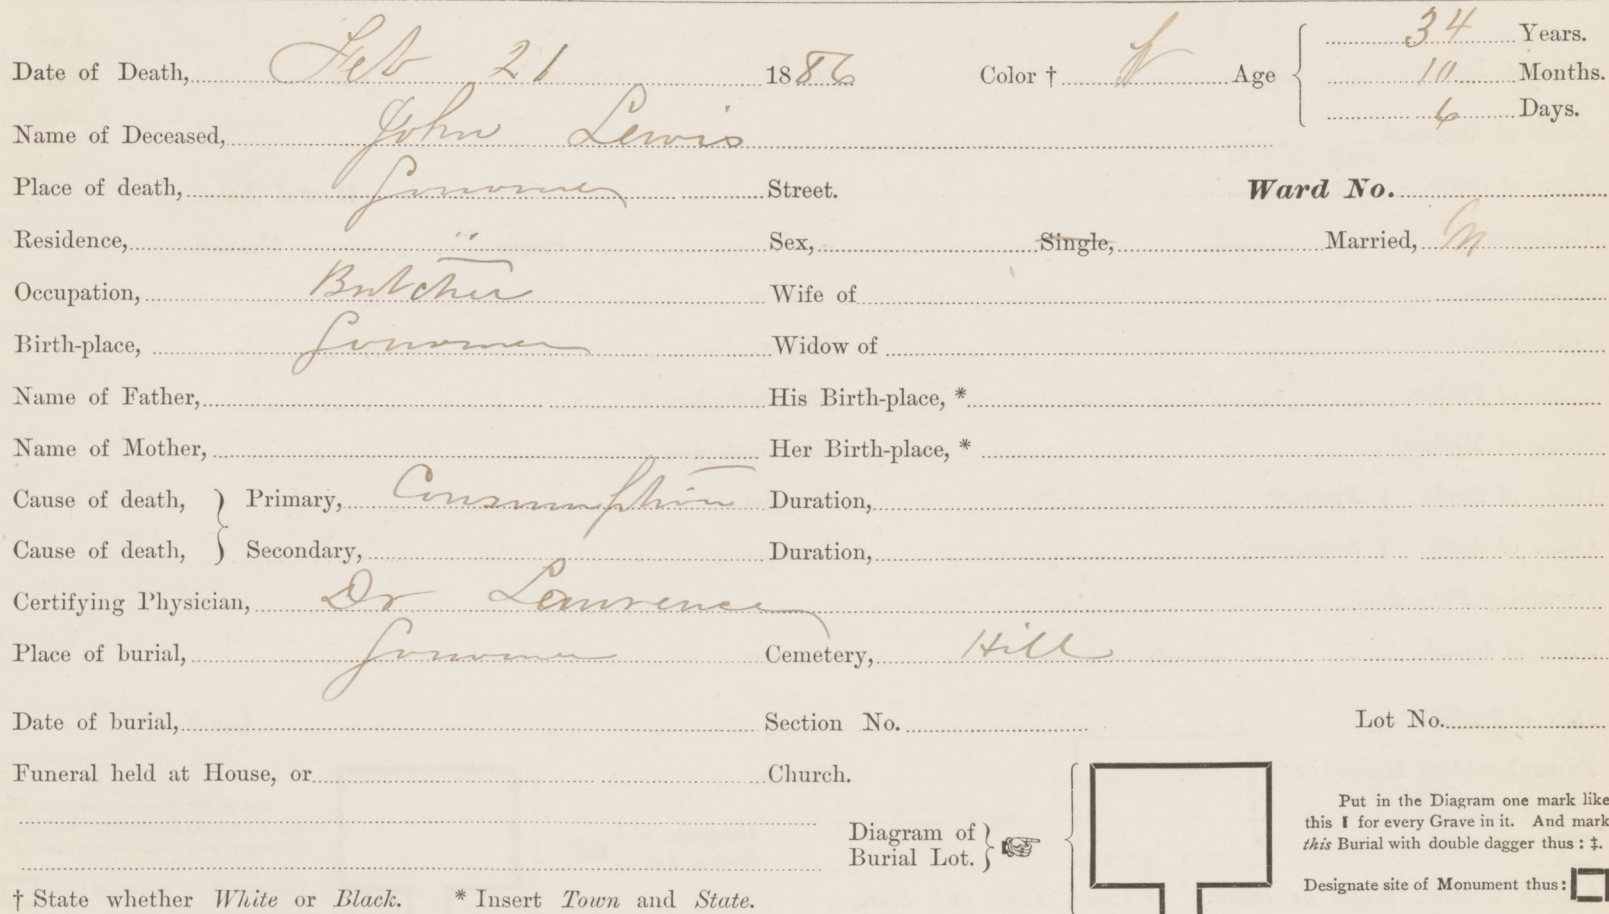 Date of Death, Feb 21 1886 Color † W Age 34 Years.
10 Months.
6 Days.
Name of Deceased, John Lewis
Place of death, Street. Ward No.
Residence, " Sex, Single, Married, M
Occupation, Butcher Wife of
Birth-place, Widow of
Name of Father, His Birth-place, *
Name of Mother, Her Birth-place, *
Cause of death, } Primary, Consumption Duration,
Cause of death, } Secondary, Duration,
Certifying Physician, Dr Lawrence
Place of burial, Cemetery, Hill
Date of burial, Section No. Lot No.
Funeral held at House, or Church.
Diagram of Burial Lot. }
Put in the Diagram one mark like
this I for every Grave in it. And mark
this Burial with double dagger thus : ‡.
Designate site of Monument thus :
† State whether White or Black. * Insert Town and State.